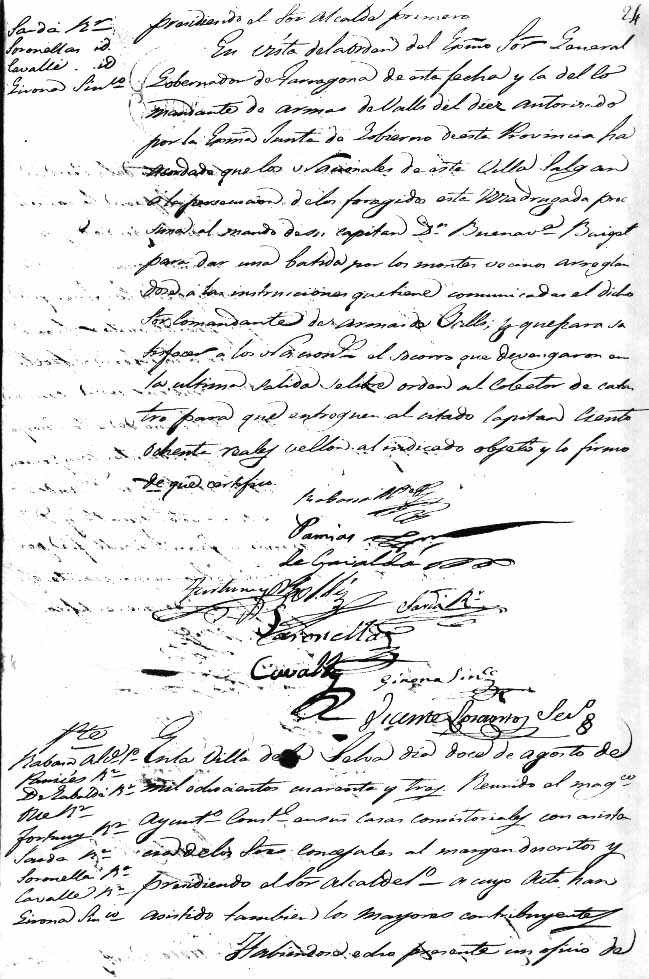 24
Sardá Rr
Soronellas id
Cavallé id
Girona Sinco
presidiendo el Sor Alcalde primero
En vista de la orden del Exmo Sor General
Gobernador de Tarragona de esta fecha y la del Co
mandante de armas de Valls del diez autorizado
por la Exma Junta de Gobierno de esta Provincia ha
mandado que los Nacionales de esta Villa Salgan
a la persecucion de los foragidos esta Madrugada proc
sima al mando de su capitan Dn Buenava Puiget
para dar una batida por los montes vecinos arreglan
dose a las instrucciones que tiene comunicadas el dicho
Sor Comandante de armas de Valls, y que para sa
tisfacer a los Nacions el socorro que devengaron en
la ultima salida se libre orden al Colector de catas
tro para que entreguen al citado Capitan Ciento
ochenta reales vellon al indicado objeto y lo firmo
de que certifico
Rabasa
Pamies
de Gavaldá
Fortuny
Sardá Rr
Soronellas
Cavallé
Girona Sinco
Vicente Seso
Pte
Rabasa Alde Po
Pamies Rr
De Gabaldá Rr
Rr
Fortuny Rr
Sardá Rr
Soronella Rr
Cavallé Rr
Girona Sinco
En la Villa de la Selva dia doce de agosto de
mil ochocientos cuarenta y tres Reunido el magco
Ayunto Constl en sus casas consistoriales con asisten
cia de los Sres concejales al margen descritos y
presidiendo el Sor Alcalde 1o a cuyo Acto han
asistido tambien los mayores contribuyentes
Habiendose echo presente un oficio de